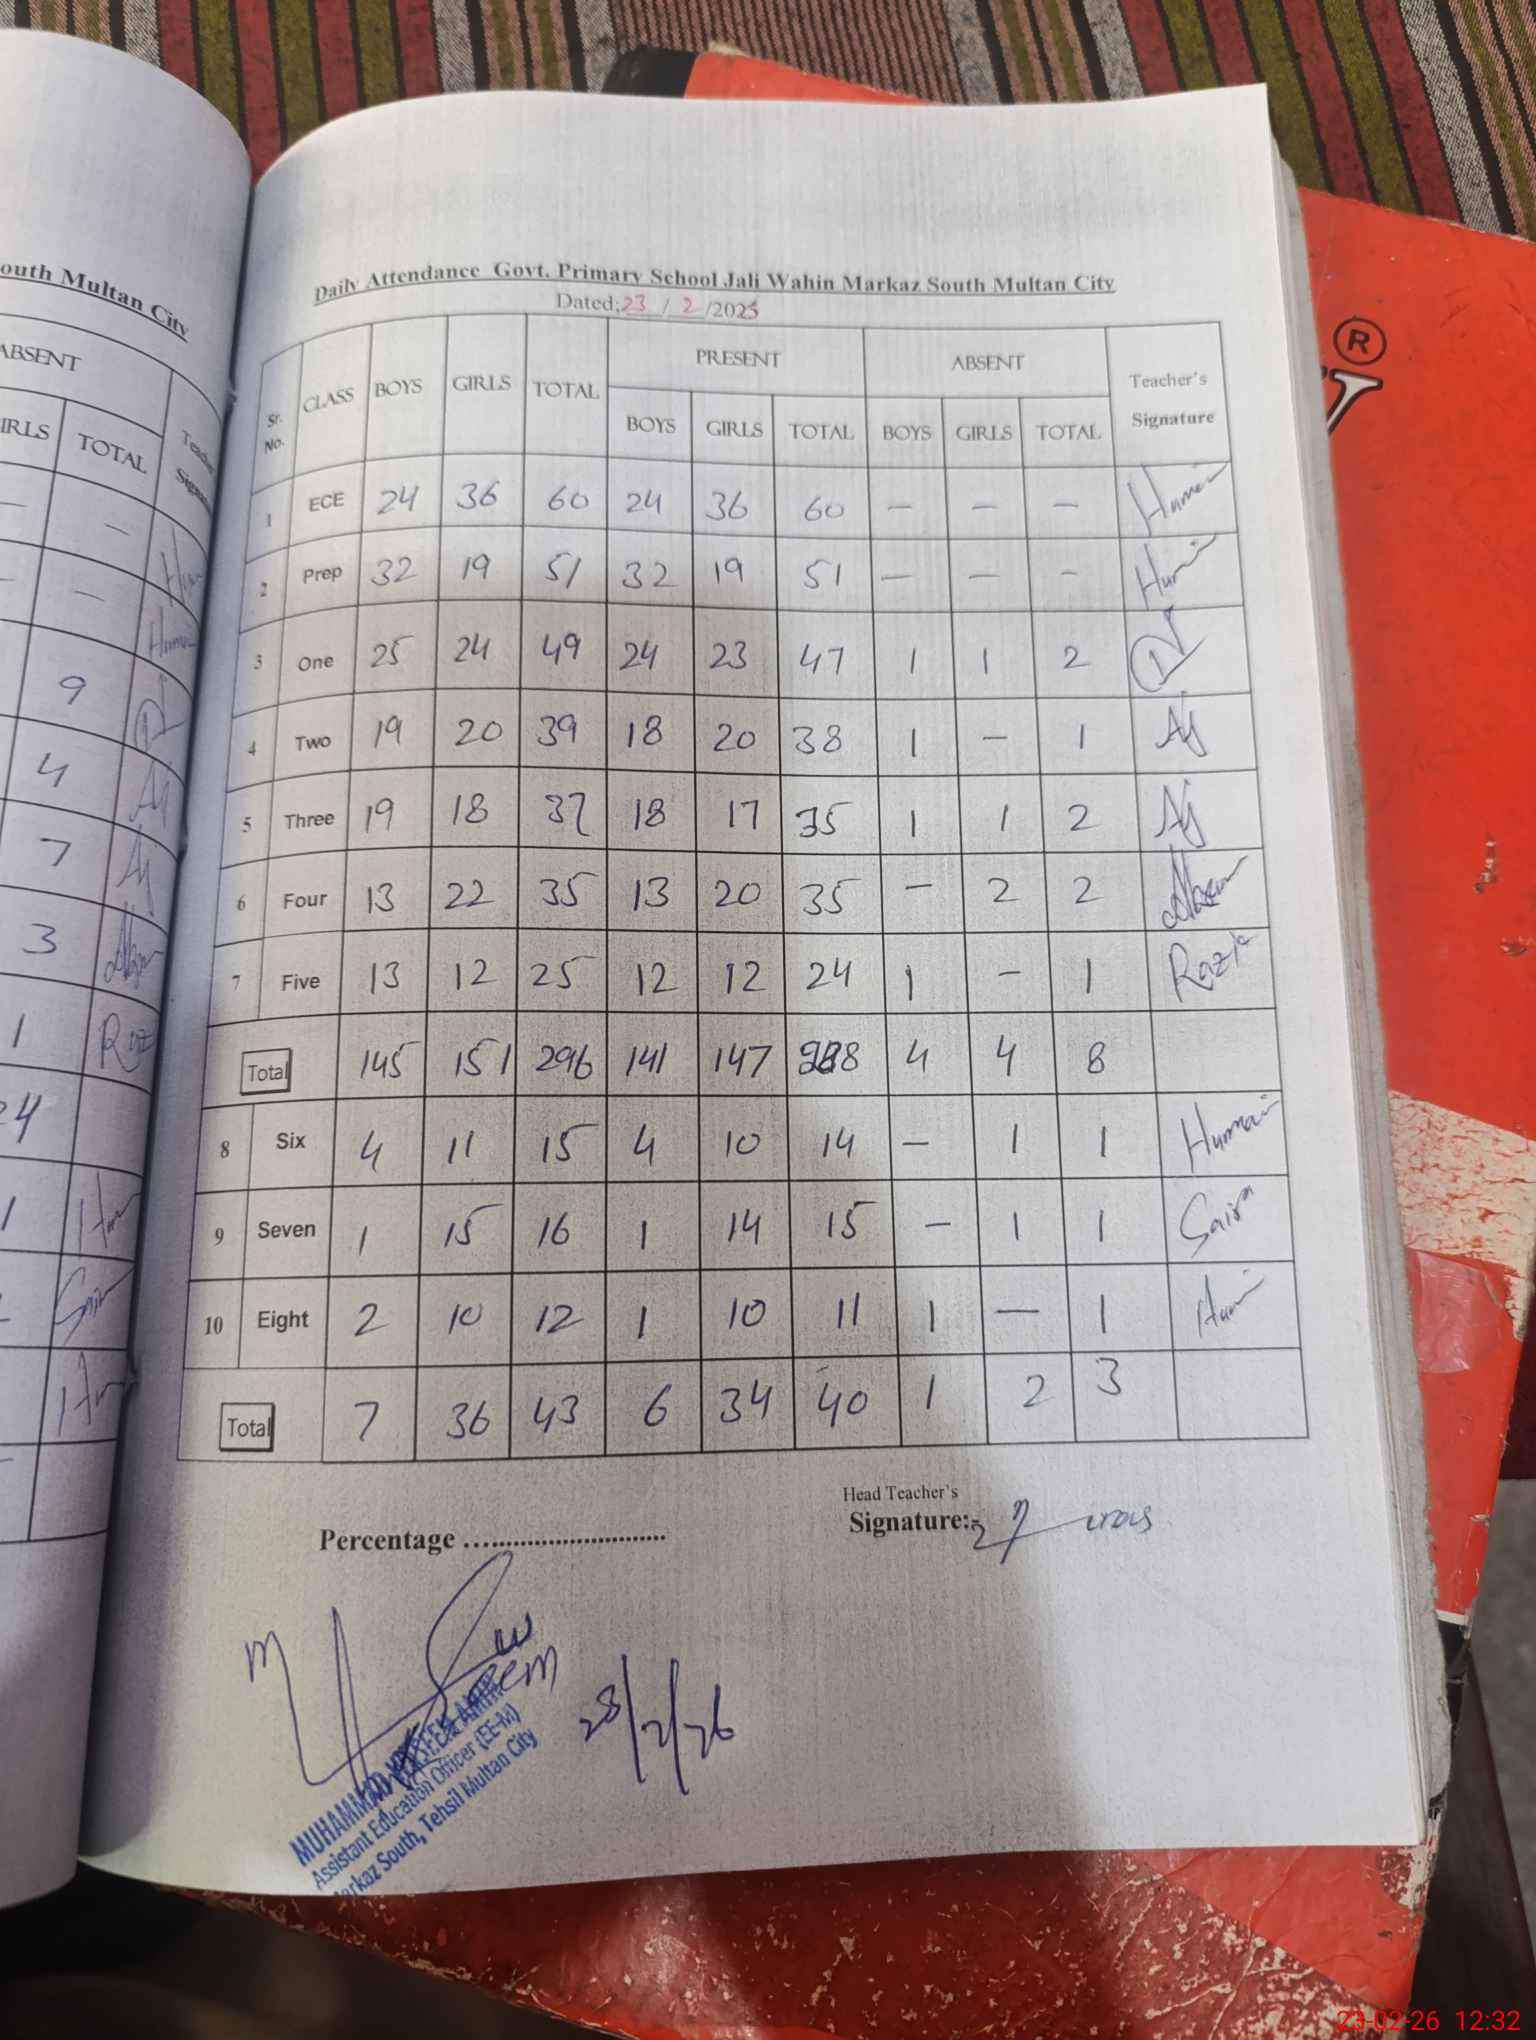 outh Multan City
ABSENT
IRLS TOTAL
— —
— —
9
4
7
3
1
24
1
Daily Attendance Govt. Primary School Jali Wahin Markaz South Multan City
Dated: 23 / 2 /2025
Sr. No. CLASS BOYS GIRLS TOTAL PRESENT ABSENT Teacher's Signature
BOYS GIRLS TOTAL BOYS GIRLS TOTAL
1 ECE 24 36 60 24 36 60 — — — Humai
2 Prep 32 19 51 32 19 51 — — -
3 One 25 24 49 24 23 47 1 1 2
4 Two 19 20 39 18 20 38 1 — 1
5 Three 19 18 37 18 17 35 1 1 2
6 Four 13 22 35 13 20 35 - 2 2
7 Five 13 12 25 12 12 24 1 - 1 Razia
Total 145 151 296 141 147 288 4 4 8
8 Six 4 11 15 4 10 14 — 1 1 Humai
9 Seven 1 15 16 1 14 15 — 1 1 Saira
10 Eight 2 10 12 1 10 11 1 — 1
Total 7 36 43 6 34 40 1 2 3
Head Teacher's
Percentage ............................. Signature:-
MUHAMMAD WASEEM
Assistant Education Officer (EE-M)
Markaz South, Tehsil Multan City
23/2/26
®
23-02-26 12:32